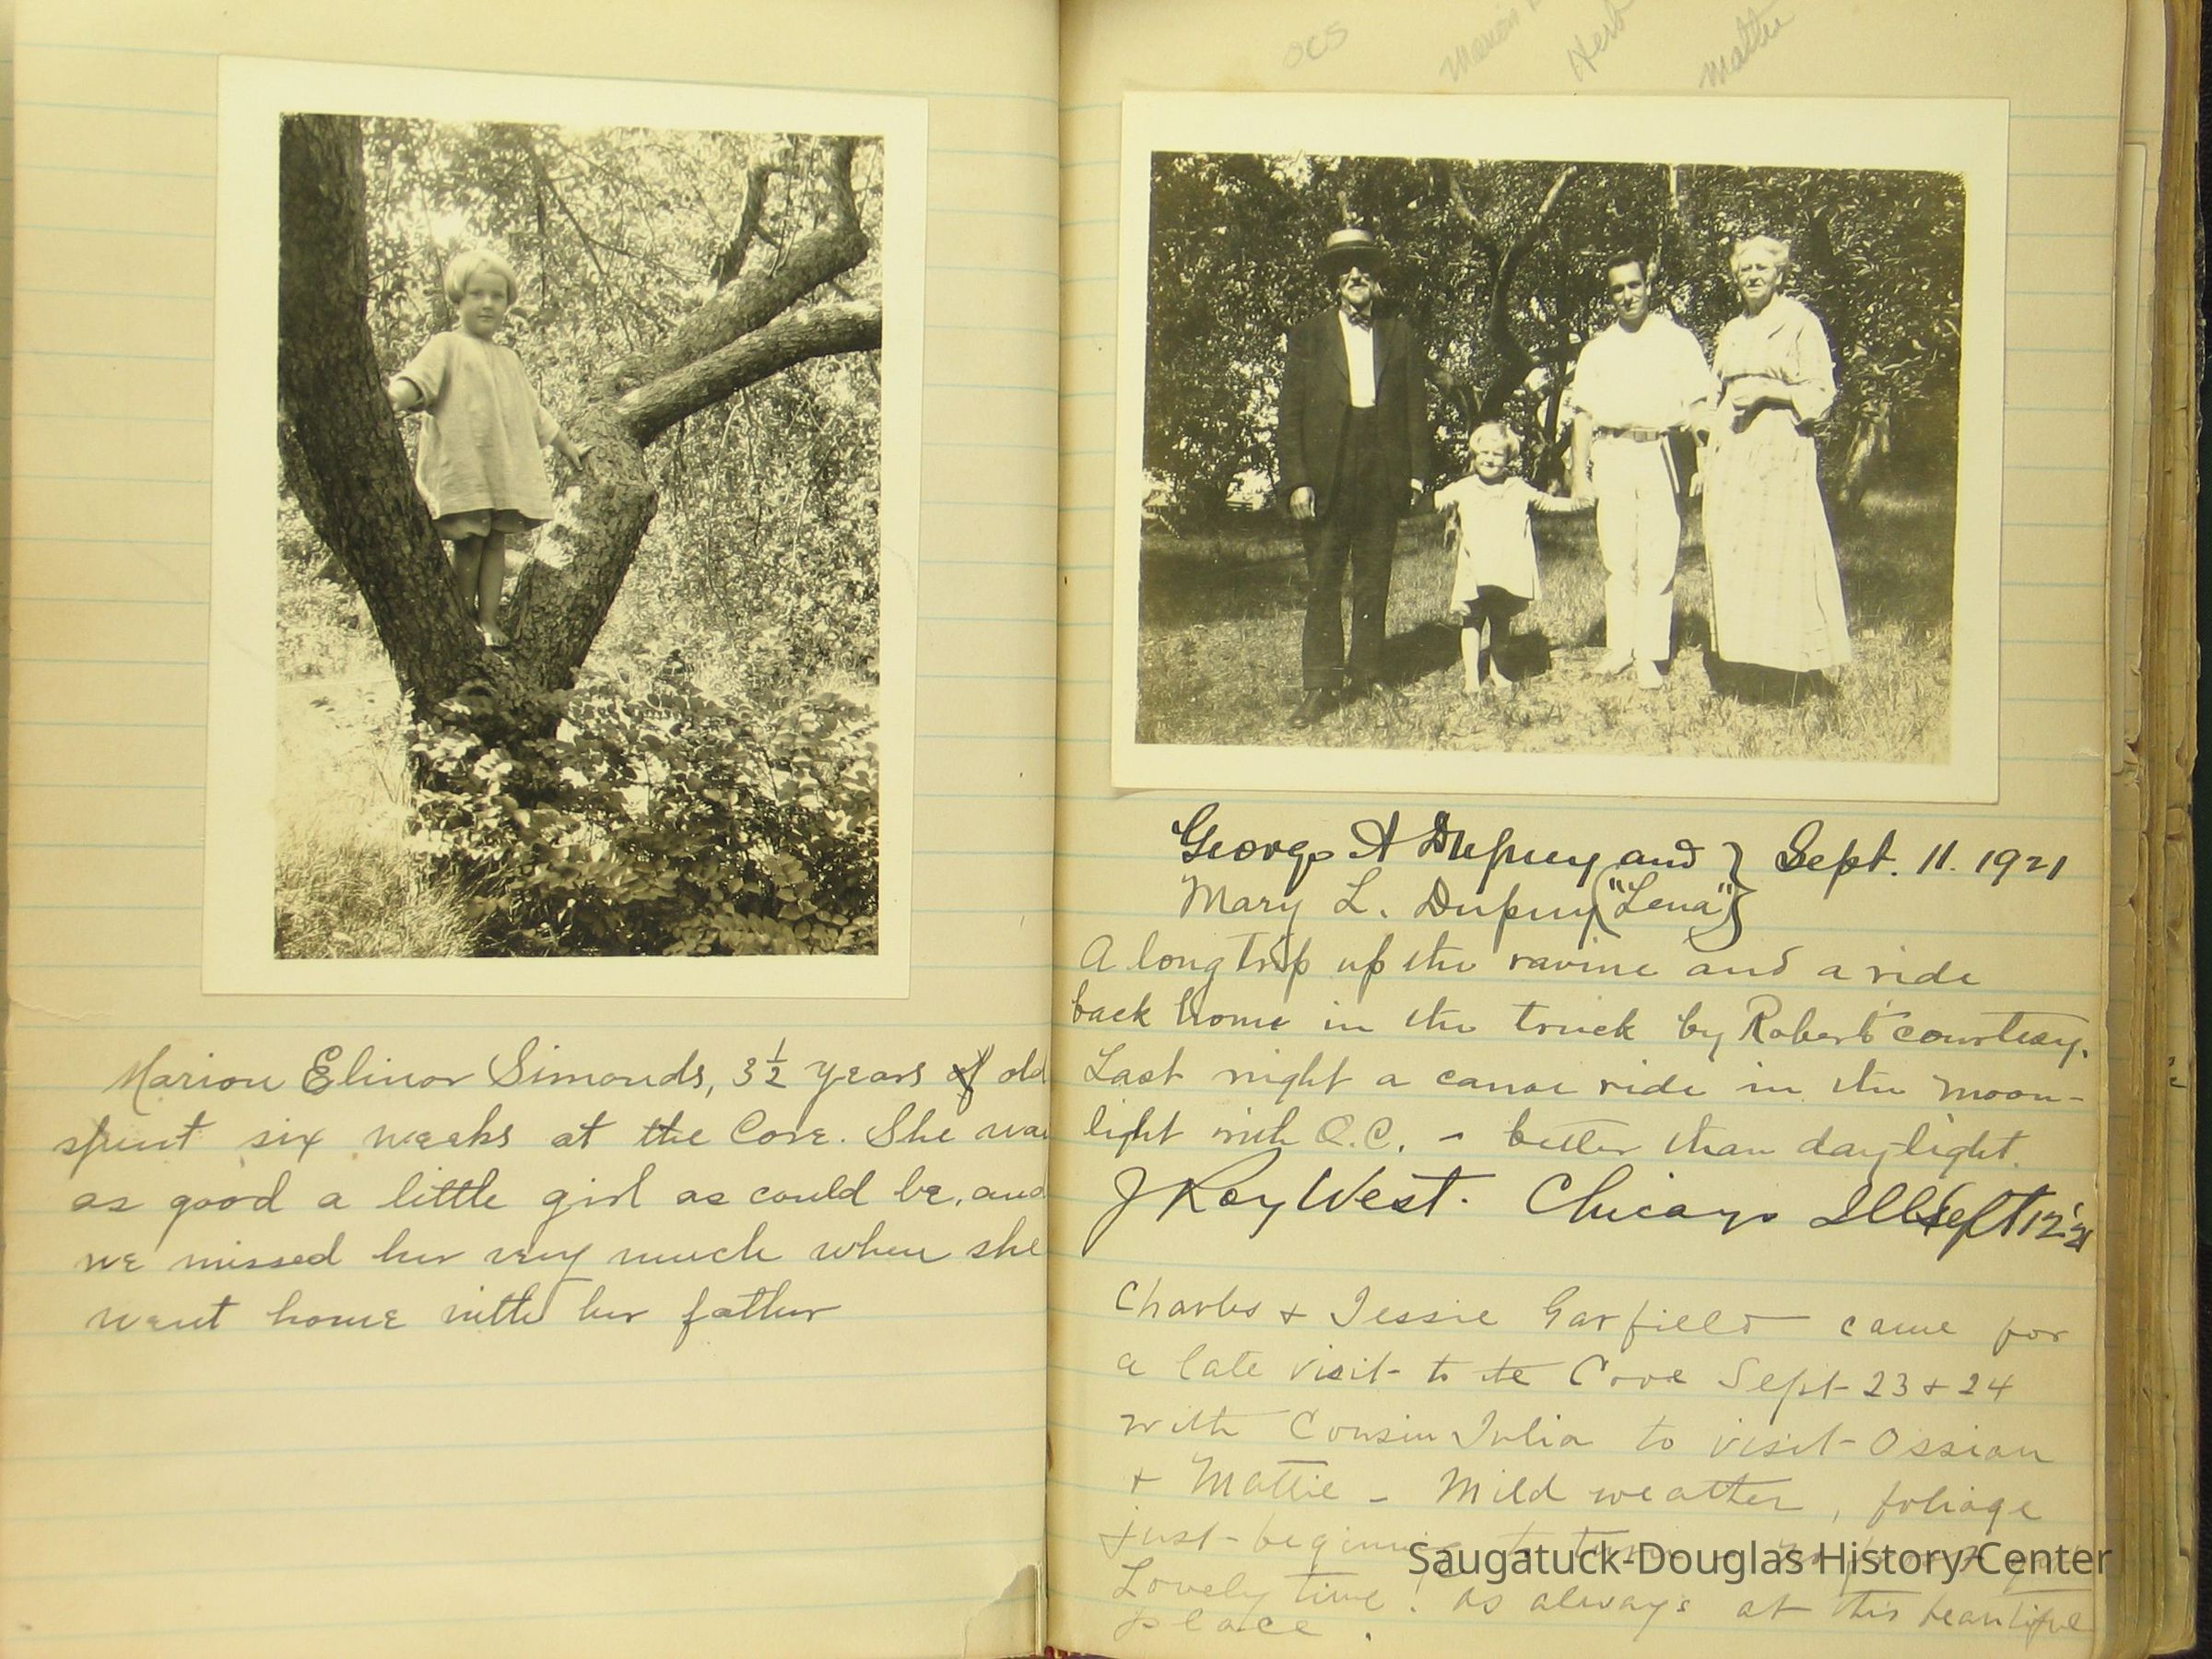 Marion Elinor Simonds, 3½ years old
spent six weeks at the Cove. She was
as good a little girl as could be, and
we missed her very much when she
went home with her father
OCS
Marion
Herb
Mattie
George A Dupuy and } Sept. 11. 1921
Mary L. Dupuy ("Lena")}
A long trip up the ravine and a ride
back home in the truck by Robert' courtesy.
Last night a canoe ride in the moon-
light with O.C. - better than daylight.
J Roy West. Chicago Ills Sept 12 '21
Charles + Jessie Garfield came for
a late visit to te Cove Sept 23 + 24
with Cousin Julia to visit Ossian
+ Mattie - Mild weather, foliage
just beginning to turn
Lovely time! as always at this beautiful
place.
Saugatuck-Douglas History Center